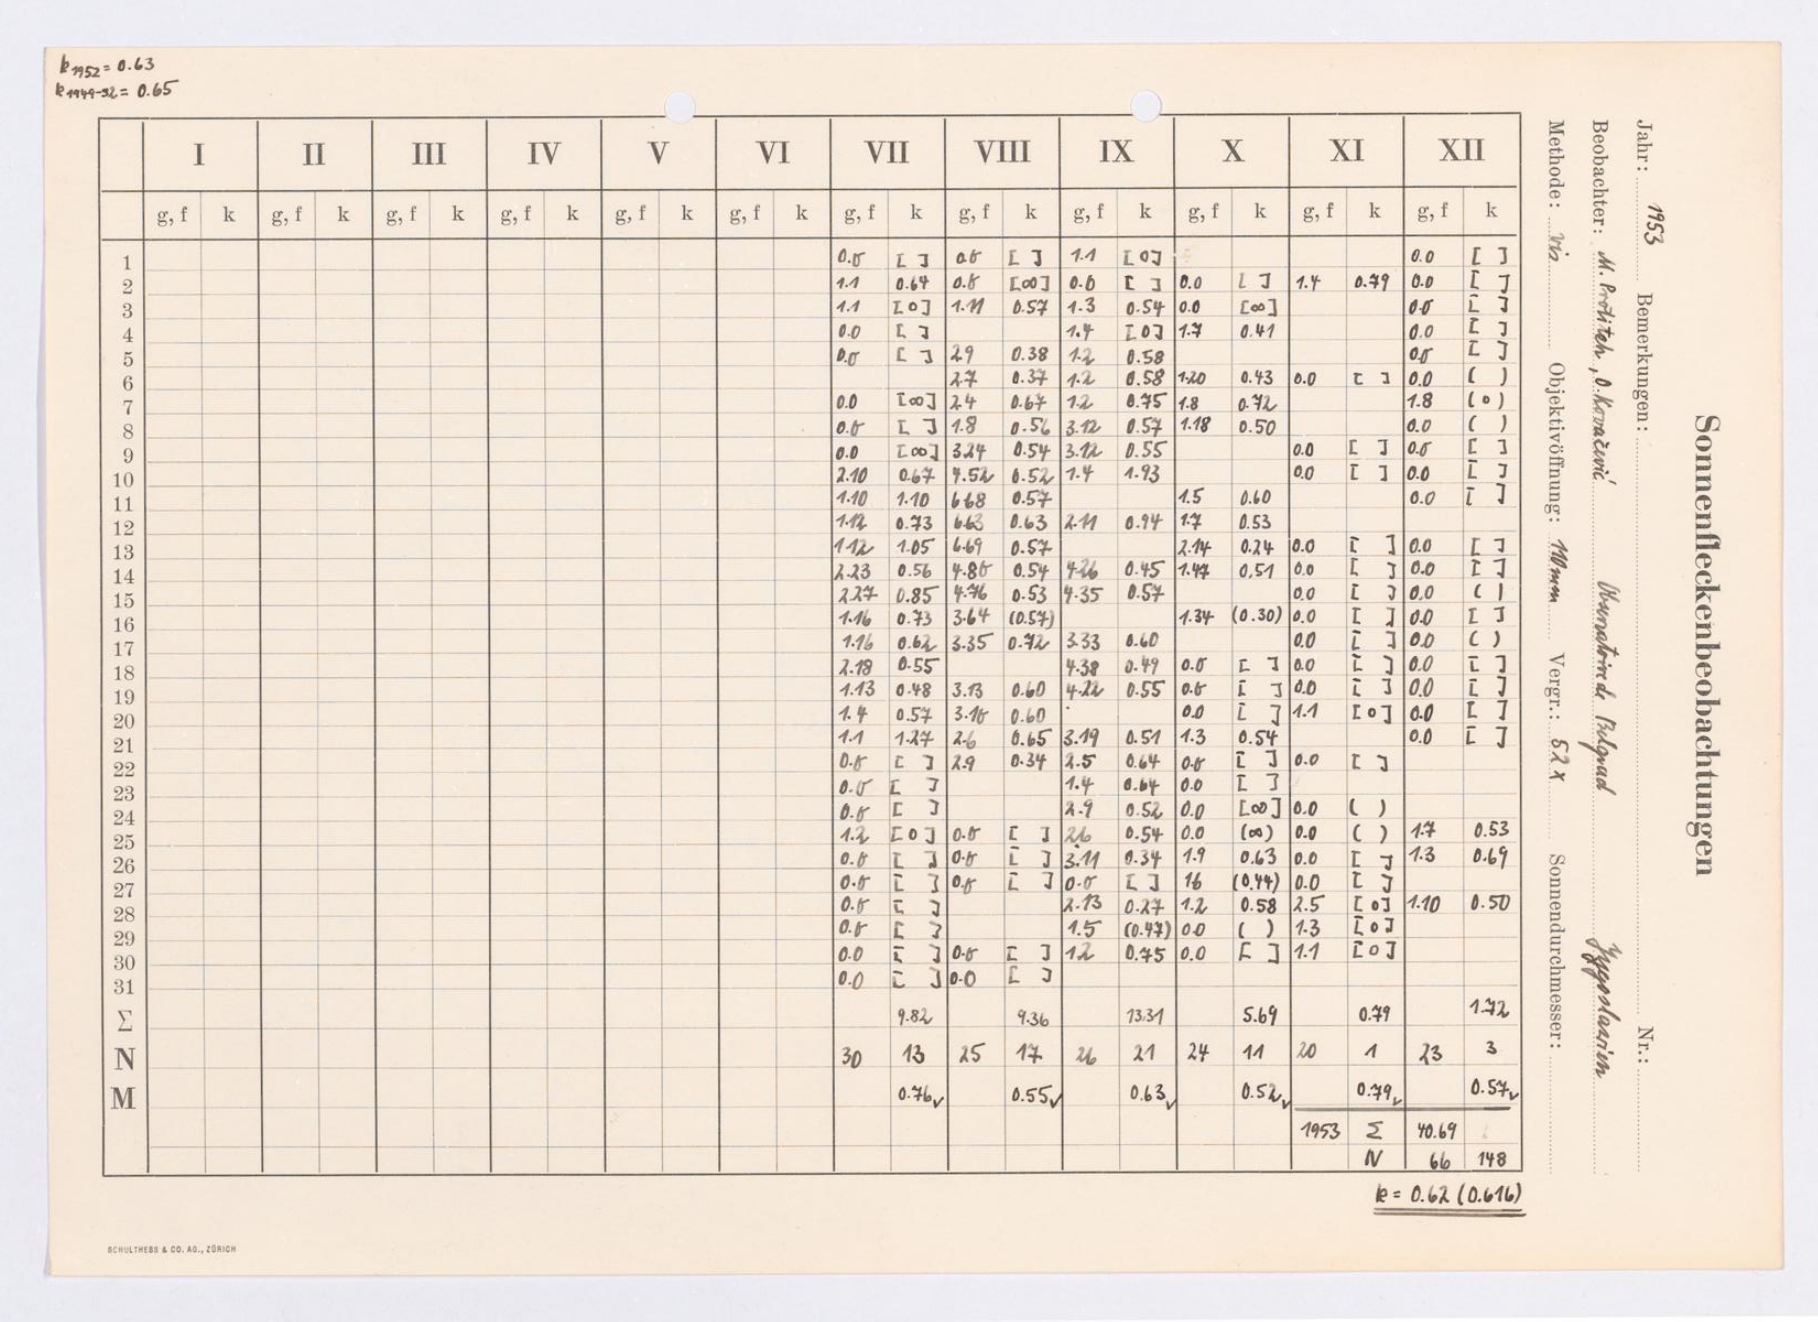 k 1952 = 0.63
k 1949-52 = 0.65
Sonnenfleckenbeobachtungen
Jahr: 1953 Bemerkungen: Nr.:
Beobachter: M. Protitch, D. Kovačević Belgrad Jugoslavien
Methode: vis Objektivöffnung: 110 mm Vergr.: 52x Sonnendurchmesser:
I II III IV V VI VII VIII IX X XI XII
g, f k g, f k g, f k g, f k g, f k g, f k g, f k g, f k g, f k g, f k g, f k g, f k
1 0.0 [ ] 0.0 [ ] 1.1 [0] 0.0 [ ]
2 1.1 0.64 0.0 [∞] 0.0 [ ] 0.0 [ ] 1.4 0.79 0.0 [ ]
3 1.1 [0] 1.11 0.57 1.3 0.54 0.0 [∞] 0.0 [ ]
4 0.0 [ ] 1.4 [0] 1.7 0.41 0.0 [ ]
5 0.0 [ ] 2.9 0.38 1.2 0.58 0.0 [ ]
6 2.7 0.37 1.2 0.58 1.20 0.43 0.0 [ ] 0.0 ( )
7 0.0 [∞] 2.4 0.67 1.2 0.75 1.8 0.72 1.8 (0)
8 0.0 [ ] 1.8 0.56 3.12 0.57 1.18 0.50 0.0 ( )
9 0.0 [∞] 3.24 0.54 3.12 0.55 0.0 [ ] 0.0 [ ]
10 2.10 0.67 4.52 0.52 1.4 1.93 0.0 [ ] 0.0 [ ]
11 1.10 1.10 6.68 0.57 1.5 0.60 0.0 [ ]
12 1.12 0.73 6.63 0.63 2.11 0.94 1.7 0.53
13 1.12 1.05 6.69 0.57 2.14 0.24 0.0 [ ] 0.0 [ ]
14 2.23 0.56 4.80 0.54 4.26 0.45 1.47 0.51 0.0 [ ] 0.0 [ ]
15 2.27 0.85 4.76 0.53 4.35 0.57 0.0 [ ] 0.0 ( )
16 1.16 0.73 3.64 (0.57) 1.34 (0.30) 0.0 [ ] 0.0 [ ]
17 1.16 0.62 3.35 0.72 3.33 0.60 0.0 [ ] 0.0 ( )
18 2.18 0.55 4.38 0.49 0.0 [ ] 0.0 [ ] 0.0 [ ]
19 1.13 0.48 3.13 0.60 4.22 0.55 0.0 [ ] 0.0 [ ] 0.0 [ ]
20 1.4 0.57 3.10 0.60 0.0 [ ] 1.1 [0] 0.0 [ ]
21 1.1 1.27 2.6 0.65 3.19 0.51 1.3 0.54 0.0 [ ]
22 0.0 [ ] 2.9 0.34 2.5 0.64 0.0 [ ] 0.0 [ ]
23 0.0 [ ] 1.4 0.64 0.0 [ ]
24 0.0 [ ] 2.9 0.52 0.0 [∞] 0.0 ( )
25 1.2 [0] 0.0 [ ] 2.6 0.54 0.0 (∞) 0.0 ( ) 1.7 0.53
26 0.0 [ ] 0.0 [ ] 3.11 0.34 1.9 0.63 0.0 [ ] 1.3 0.69
27 0.0 [ ] 0.0 [ ] 0.0 [ ] 1.6 (0.44) 0.0 [ ]
28 0.0 [ ] 2.13 0.27 1.2 0.58 2.5 [0] 1.10 0.50
29 0.0 [ ] 1.5 (0.47) 0.0 ( ) 1.3 [0]
30 0.0 [ ] 0.0 [ ] 1.2 0.75 0.0 [ ] 1.1 [0]
31 0.0 [ ] 0.0 [ ]
Σ 9.82 9.36 13.31 5.69 0.79 1.72
N 30 13 25 17 26 21 24 11 20 1 23 3
M 0.76✓ 0.55✓ 0.63✓ 0.52✓ 0.79✓ 0.57✓
1953 Σ 40.69
N 66 148
k = 0.62 (0.616)
SCHULTHESS & CO. AG., ZÜRICH